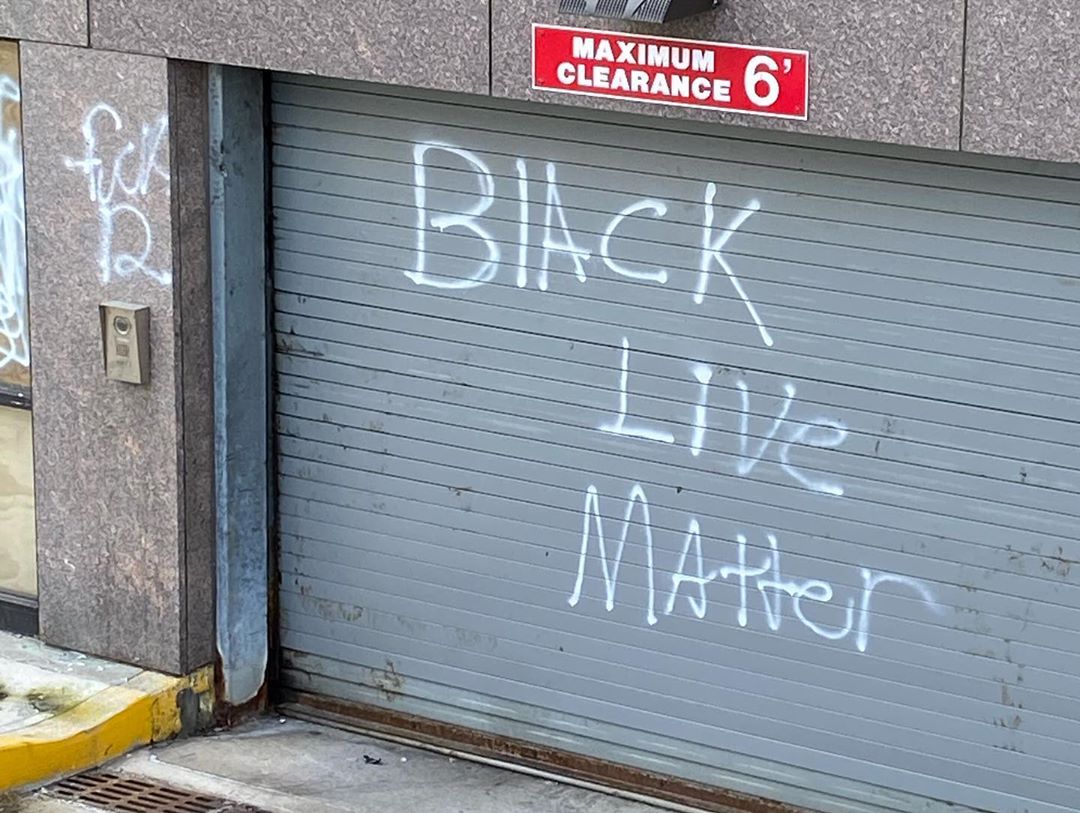 MAXIMUM
CLEARANCE 6'
fuck
12
BlAcK
Live
Matter